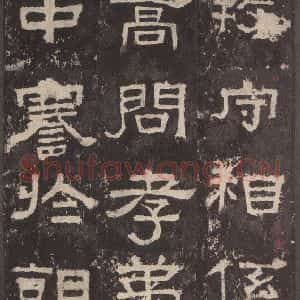 牧守相係
高問孝弟
中謇於朝
Shufawang.CN